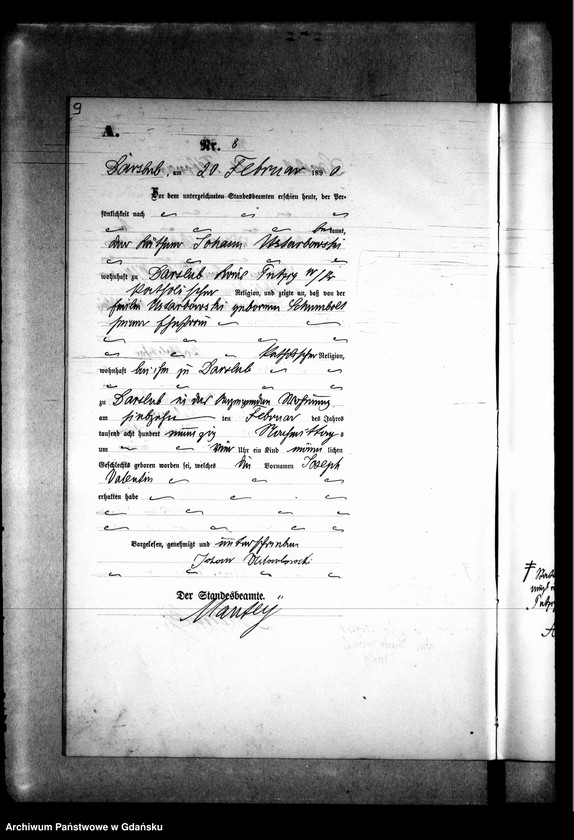 9
A.
Nr. 8
Darslub, am 20 Februar 1890
Vor dem unterzeichneten Standesbeamten erschien heute, der Per-
sönlichkeit nach
bekannt,
der Käthner Johann Ustarbowski
wohnhaft zu Darslub Kreis Putzig W/Pr
katholischer Religion, und zeigte an, daß von der
Ustarbowski geborenen
seiner Ehefrau
katholischer Religion,
wohnhaft bei ihm zu Darslub
zu Darslub in der Wohnung
am siebzehn ten Februar des Jahres
tausend acht hundert neunzig Nachmittags
um vier Uhr ein Kind männlichen
Geschlechts geboren worden sei, welches die Vornamen Joseph
Valentin
erhalten habe
Vorgelesen, genehmigt und unterschrieben
Johann
Der Standesbeamte.
Archiwum Państwowe w Gdańsku